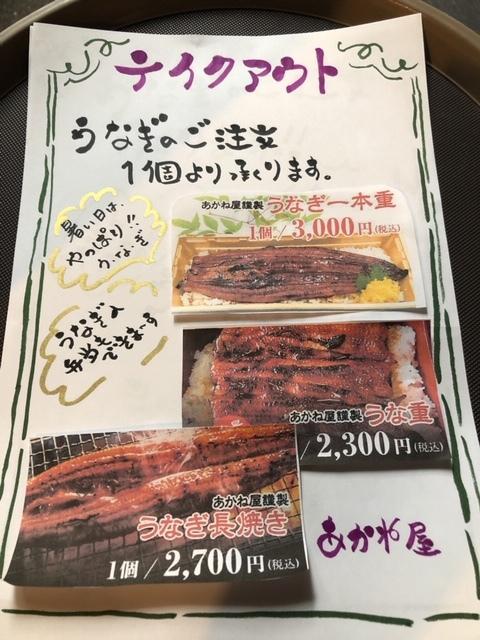 テイクアウト
うなぎのご注文
1個より承ります。
暑い日は、
やっぱり!!
うなぎ
うなぎ
弁当もできます
あかね屋謹製 うなぎ一本重
1個/3,000円(税込)
あかね屋謹製 うな重
/2,300円(税込)
あかね屋謹製
うなぎ長焼き
1個/2,700円(税込)
あかね屋